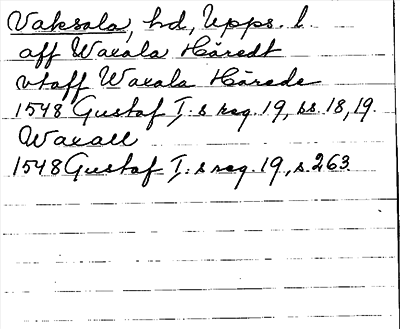 Vaksala, hd, Upps. l.
aff Waxala Häredt
vtaff Waxala Härede
1548 Gustaf I:s reg. 19, ss. 18, 19.
Waxall
1548 Gustaf I:s reg. 19, s. 263